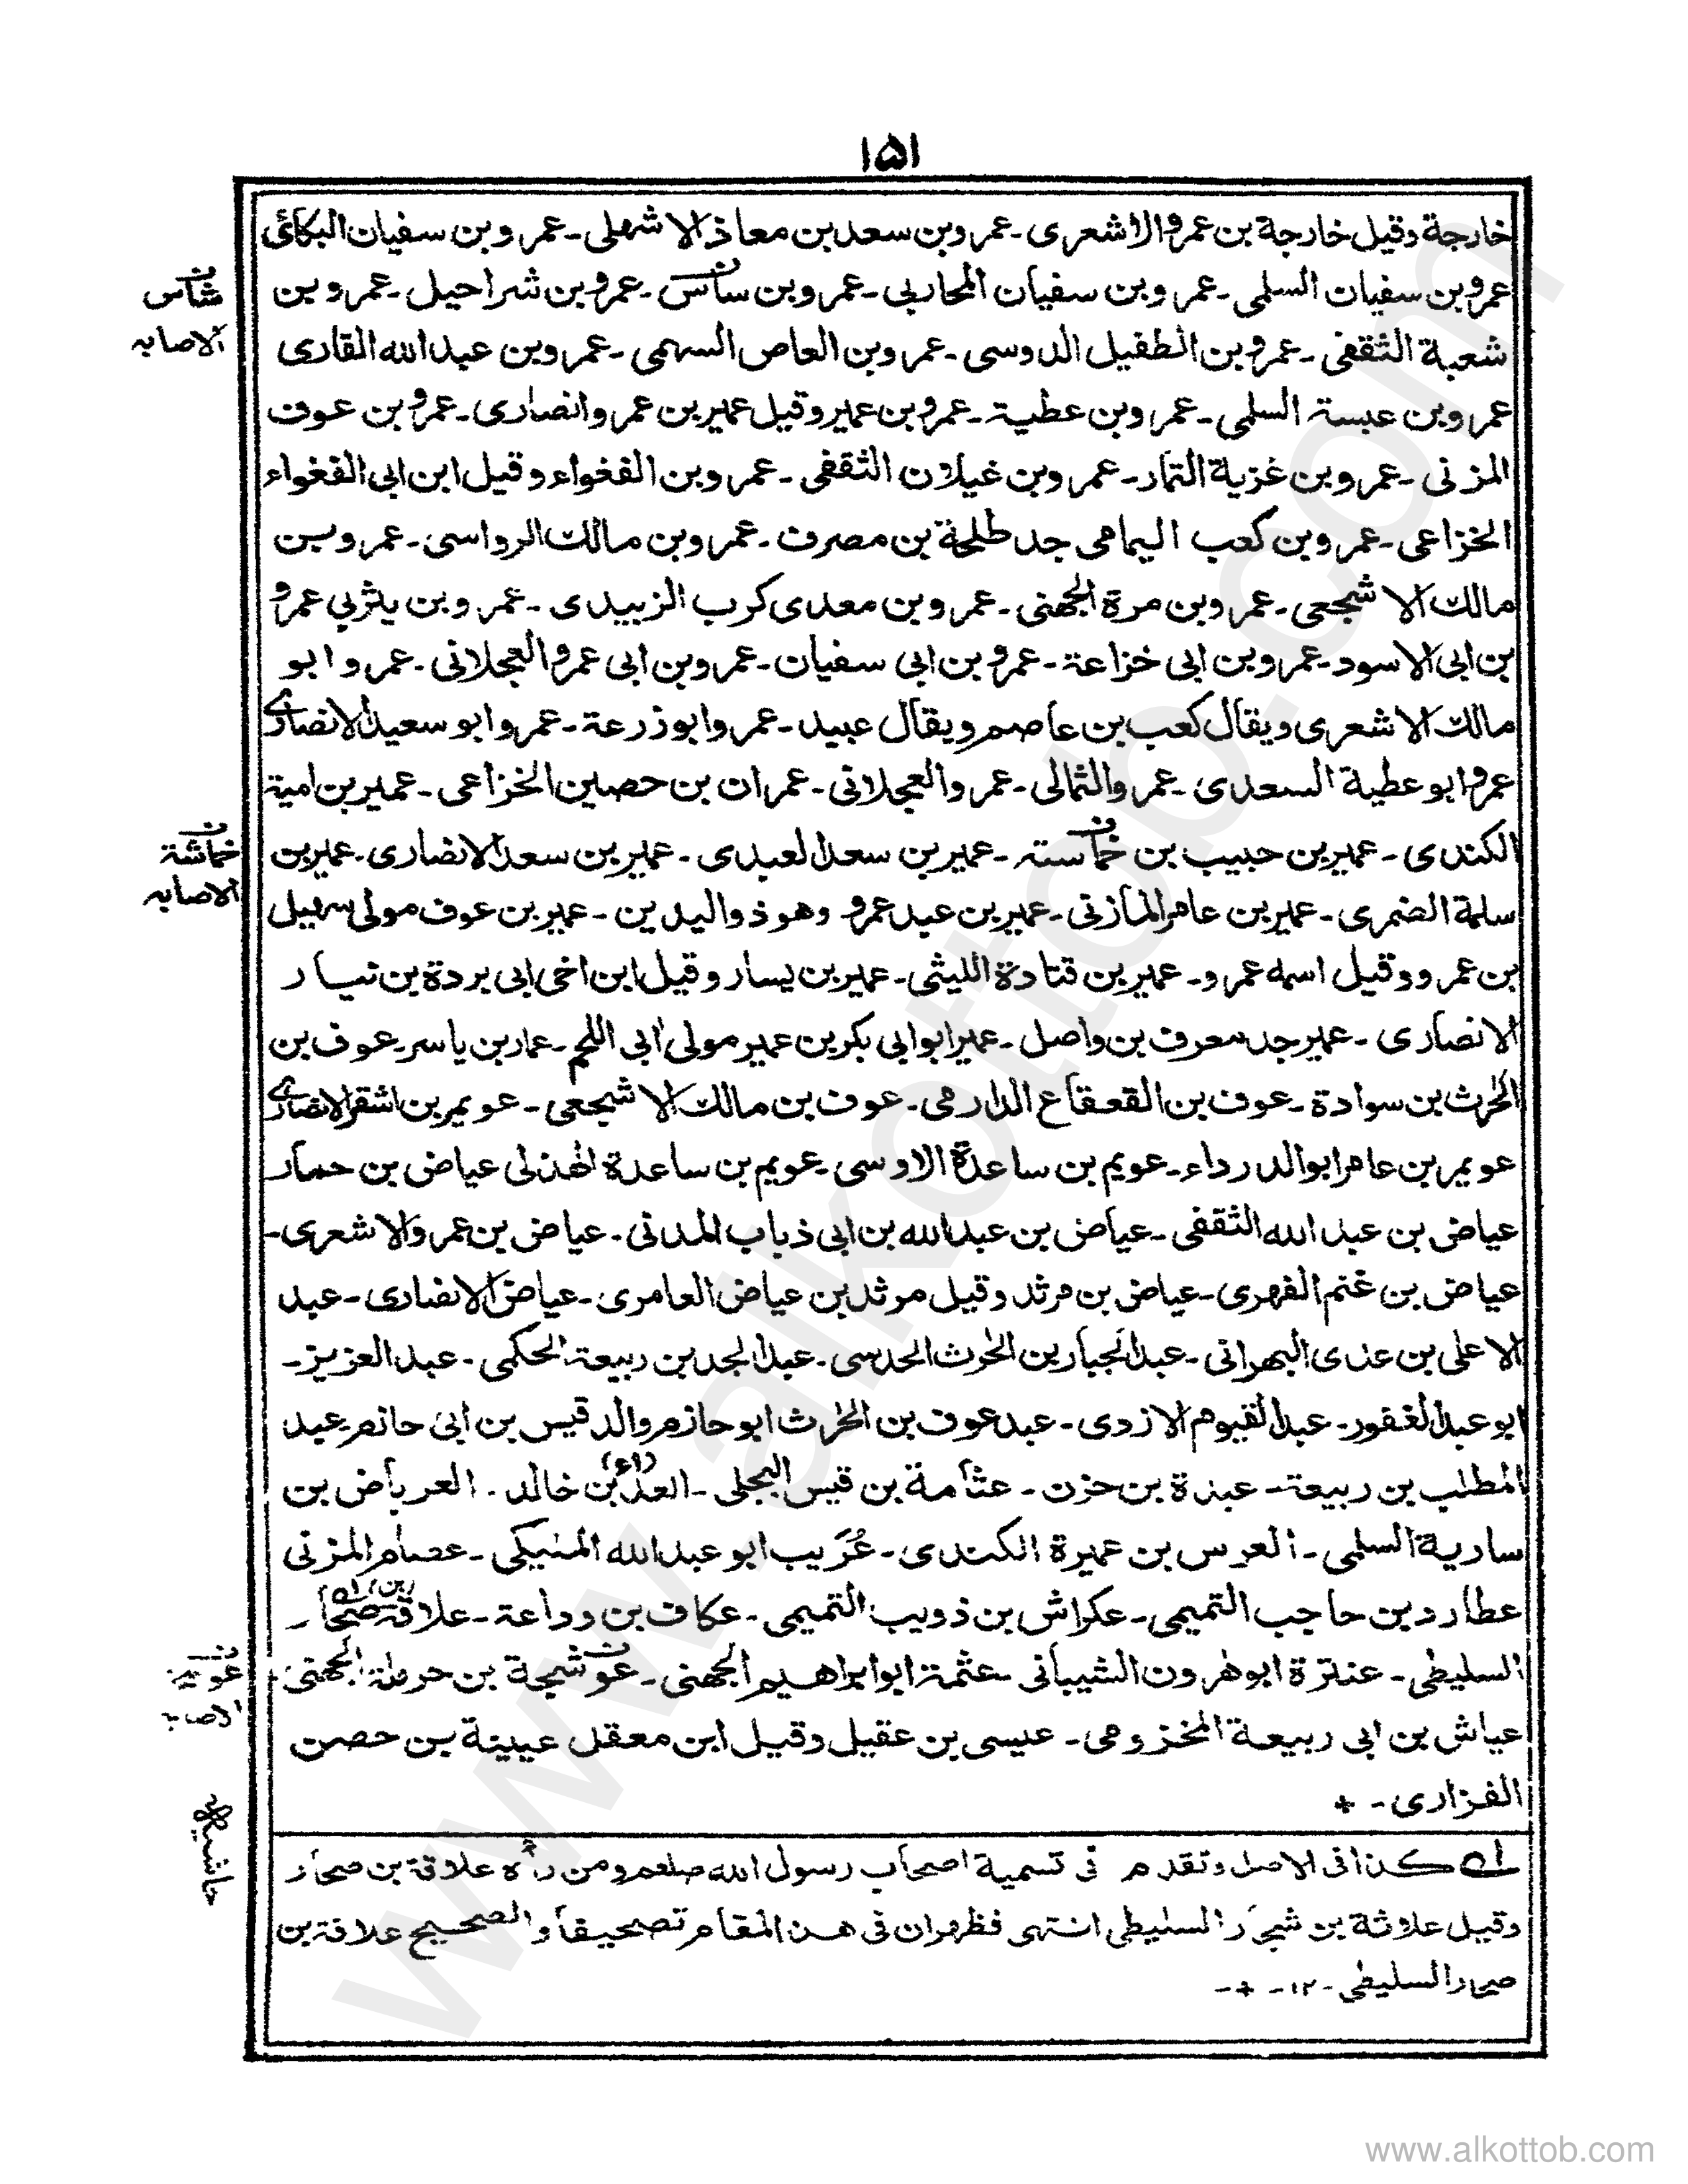 ١٥١
خارجة وقيل خارجة بن عمرو الاشعرى ـ عمرو بن سعد بن معاذ الاشهلى ـ عمرو بن سفيان البكائى
عمرو بن سفيان السلمى ـ عمرو بن سفيان المحاربى ـ عمرو بن ساس ـ عمرو بن شراحيل ـ عمرو بن
شاس
الاصابه
شعبة الثقفى ـ عمرو بن الطفيل الدوسى ـ عمرو بن العاص السهمى ـ عمرو بن عبد الله القارى
عمرو بن عبسة السلمى ـ عمرو بن عطية ـ عمرو بن عمير وقيل عمير بن عمرو انصارى ـ عمرو بن عوف
المزنى ـ عمرو بن غزية التمار ـ عمرو بن غيلان الثقفى ـ عمرو بن الفغواء وقيل ابن ابى الفغواء
الخزاعى ـ عمرو بن كعب اليمامى جد طلحة بن مصرف ـ عمرو بن مالك الرواسى ـ عمرو بن
مالك الاشجعى ـ عمرو بن مرة الجهنى ـ عمرو بن معدى كرب الزبيدى ـ عمرو بن يثربى عمرو
بن ابى الاسود ـ عمرو بن ابى خزاعة ـ عمرو بن ابى سفيان ـ عمرو بن ابى عمرو العجلانى ـ عمرو ابو
مالك الاشعرى ويقال كعب بن عاصم ويقال عبيد ـ عمرو ابو زرعة ـ عمرو ابو سعيد الانصارى
عمرو ابو عطية السعدى ـ عمرو الثمالى ـ عمرو العجلانى ـ عمران بن حصين الخزاعى ـ عمير بن امية
الكندى ـ عمير بن حبيب بن خماسته ـ عمير بن سعد العبدى ـ عمير بن سعد الانصارى ـ عمير بن
خماشة
الاصابه
سلمة الضمرى ـ عمير بن عامر المازنى ـ عمير بن عبد عمرو وهو ذو اليدين ـ عمير بن عوف مولى سهيل
بن عمرو وقيل اسمه عمرو ـ عمير بن قتادة الليثى ـ عمير بن يسار وقيل ابن اخى ابى بردة بن نيار
الانصارى ـ عمير جد معرف بن واصل ـ عمير ابو ابى بكر بن عمير مولى ابى اللحم ـ عمار بن ياسر ـ عوف بن
الحرث بن سوادة ـ عوف بن القعقاع الدارمى ـ عوف بن مالك الاشجعى ـ عويمر بن اشقر الانصارى
عويمر بن عامر ابو الدرداء ـ عويم بن ساعدة الاوسى ـ عويم بن ساعدة الهذلى عياض بن حمار
عياض بن عبد الله الثقفى ـ عياض بن عبد الله بن ابى ذباب المدنى ـ عياض بن عمرو الاشعرى ـ
عياض بن غنم الفهرى ـ عياض بن مرثد وقيل مرثد بن عياض العامرى ـ عياض الانصارى ـ عبد
الاعلى بن عدى البهرانى ـ عبد الجبار بن الحرث الحدسى ـ عبد الجد بن ربيعة الحكمى ـ عبد العزيز ـ
ابو عبد الغفور ـ عبد القيوم الازدى ـ عبد عوف بن الحرث ابو حازم والد قيس بن ابى حازم عبد
المطلب بن ربيعة ـ عبدة بن حزن ـ عثامة بن قيس البجلى ـ العد(اء) بن خالد ـ العرباض بن
سارية السلمى ـ العرس بن عميرة الكندى ـ عُرَيب ابو عبد الله المليكى ـ عصام المزنى
عطارد بن حاجب التميمى ـ عكراش بن ذويب التميمى ـ عكاف بن وداعة ـ علاقة (بن) صحار ـ
السليطى ـ عنترة ابو هرون الشيبانى ـ عثمة ابو ابراهيم الجهنى ـ عوشجة بن حرملة الجهنى ـ
الاصابه
عياش بن ابى ربيعة المخزومى ـ عيسى بن عقيل وقيل ابن معقل عيينة بن حصن
الفزارى ـ +
حاشيه
له كذا فى الاصل وتقدم فى تسمية اصحاب رسول الله صلعم ومن رآه علاقة بن صحار
وقيل علاثة بن شجار السليطى انتهى فظهر ان فى هذا المقام تصحيفا والصحيح علاقة بن
صحار السليطى ـ ١٢ ـ + ـ
www.alkottob.com
www.alkottob.com